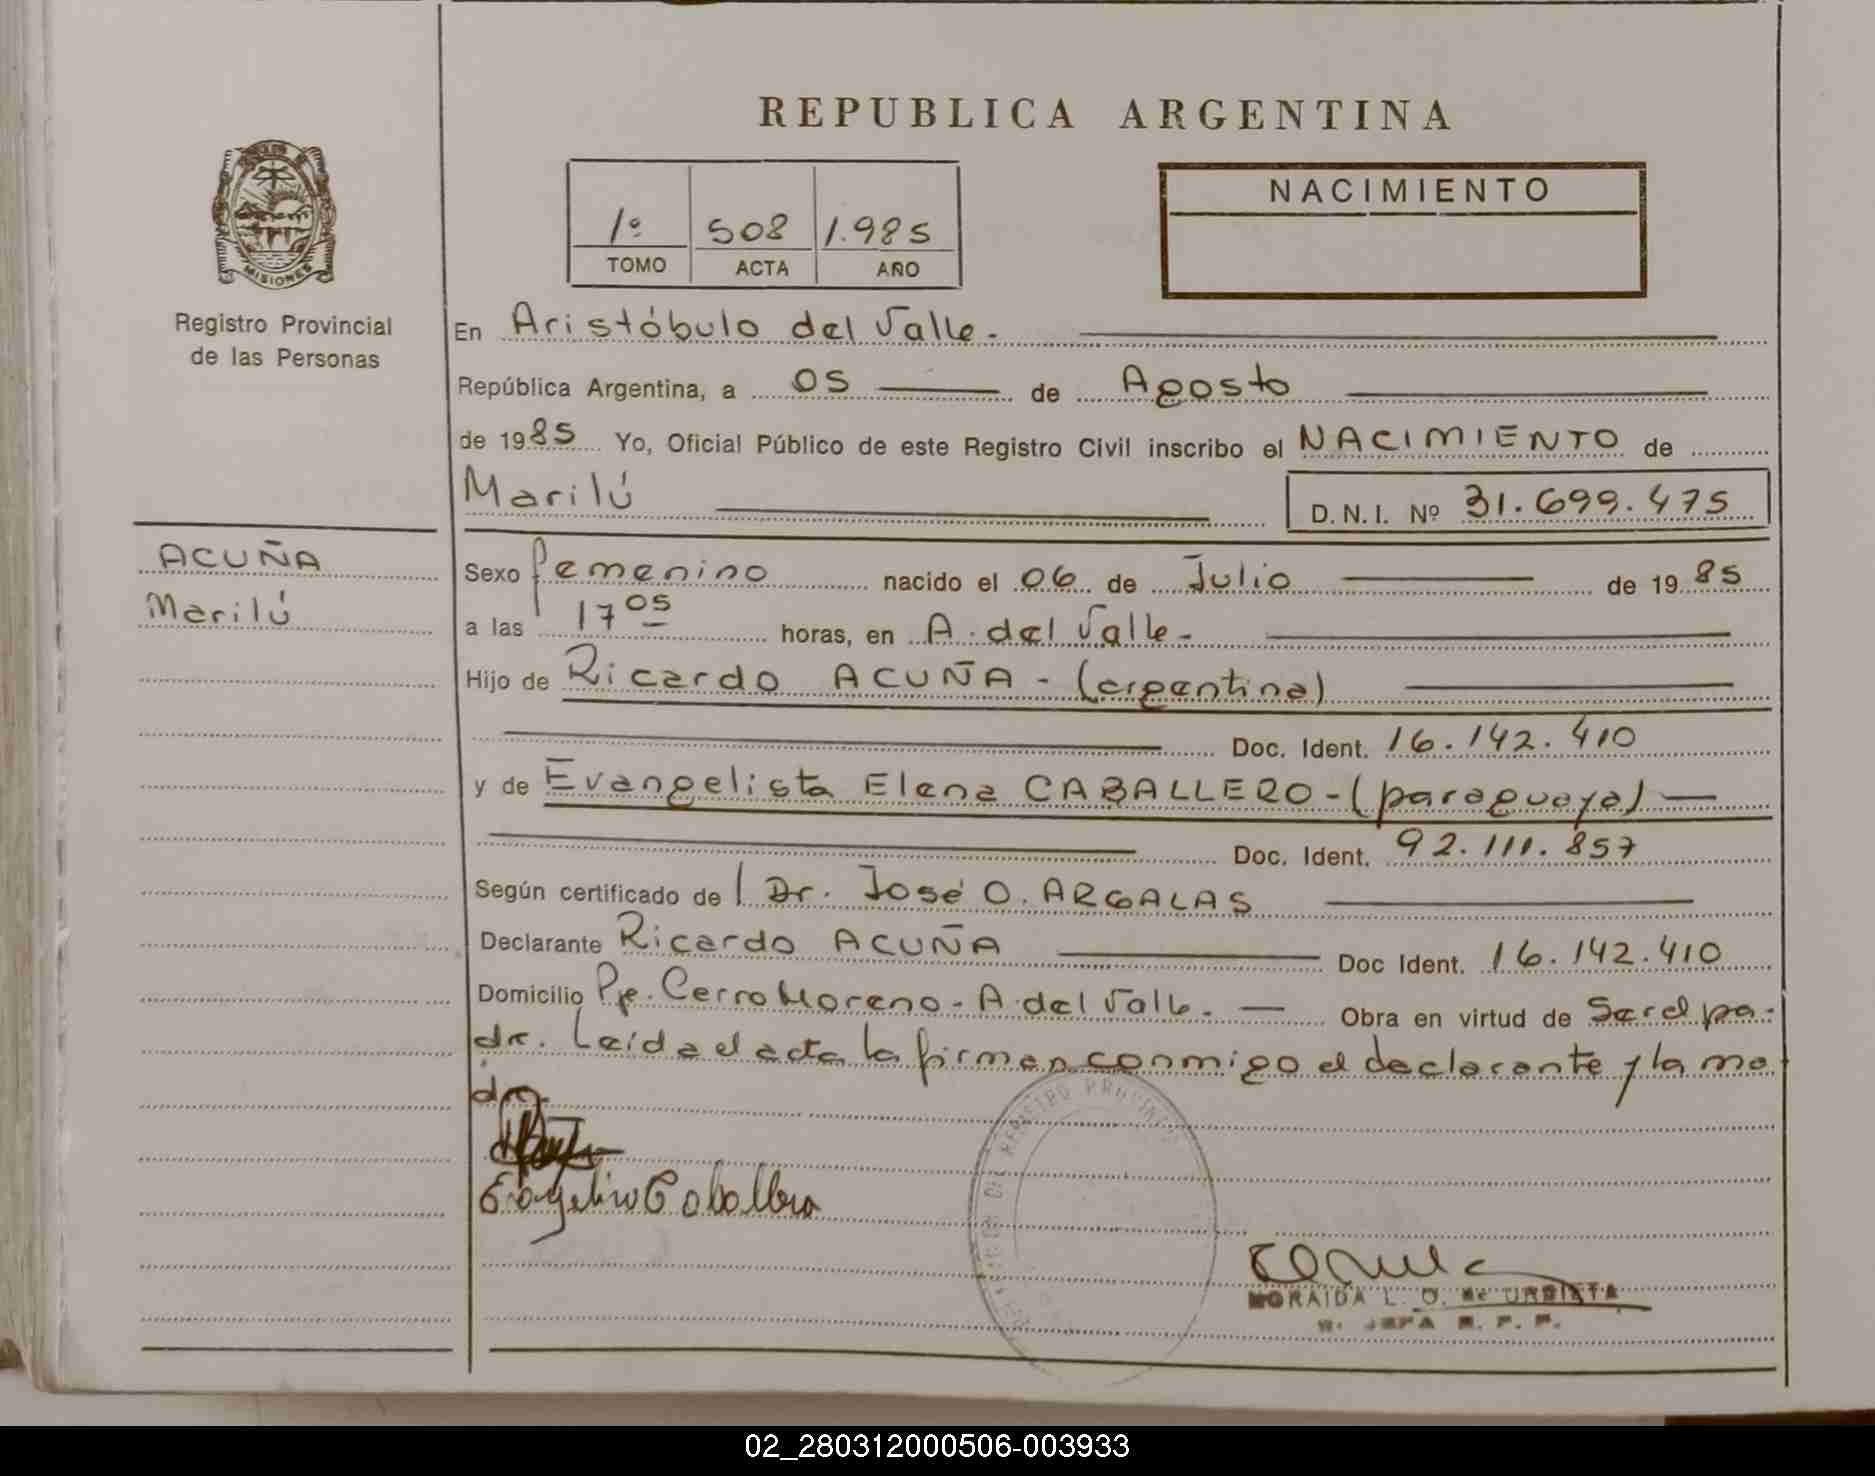 REPUBLICA ARGENTINA
MISIONES
Registro Provincial
de las Personas
1º 508 1.985
TOMO ACTA AÑO
NACIMIENTO
En Aristóbulo del Valle.
República Argentina, a 05 de Agosto
de 1985 Yo, Oficial Público de este Registro Civil inscribo el NACIMIENTO de
Marilú D.N.I. Nº 31.699.475
ACUÑA
Marilú
Sexo femenino nacido el 06 de Julio de 1985
a las 17 05 horas, en A. del Valle.
Hijo de Ricardo ACUÑA - (argentina)
Doc. Ident. 16.142.410
y de Evangelista Elena CABALLERO - (paraguaya)
Doc. Ident. 92.111.857
Según certificado de Dr. José O. ARGALAS
Declarante Ricardo ACUÑA Doc Ident. 16.142.410
Domicilio Pje. Cerro Moreno - A. del Valle. Obra en virtud de Ser el pa-
dre. Leída el acta la firman conmigo el declarante y la ma
dre.
REGISTRO PROVINCIAL
MORAIDA L. O. de URRIETA
JEFA R. P. P.
02_280312000506-003933